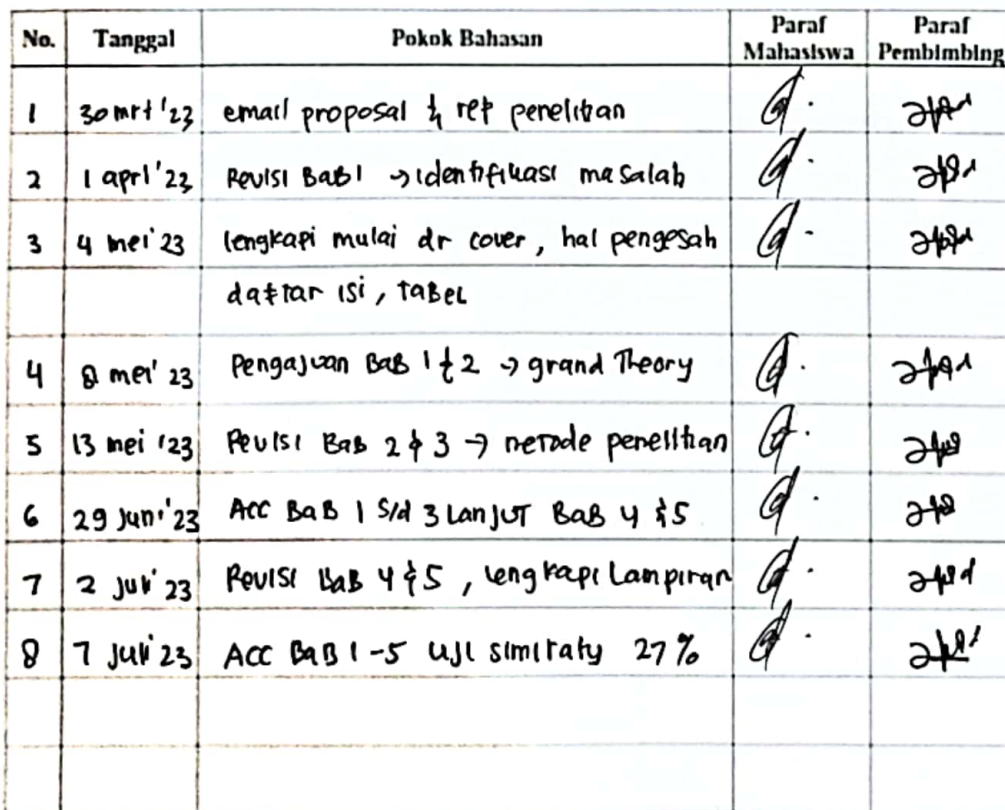 No. Tanggal Pokok Bahasan Paraf Mahasiswa Paraf Pembimbing
1 30 mrt '23 email proposal & ref penelitian
2 1 aprl '23 Revisi BaB 1 → identifikasi masalah
3 4 mei '23 lengkapi mulai dr cover, hal pengesah
daftar isi, TABEL
4 8 mei' 23 Pengajuan BaB 1 & 2 → grand Theory
5 13 mei '23 Revisi BaB 2 & 3 → metode penelitian
6 29 Juni '23 ACC BaB 1 S/d 3 LanJUT BaB 4 & 5
7 2 Juli '23 Revisi BaB 4 & 5, lengkapi Lampiran
8 7 Juli '23 ACC BaB 1-5 UJI 27%